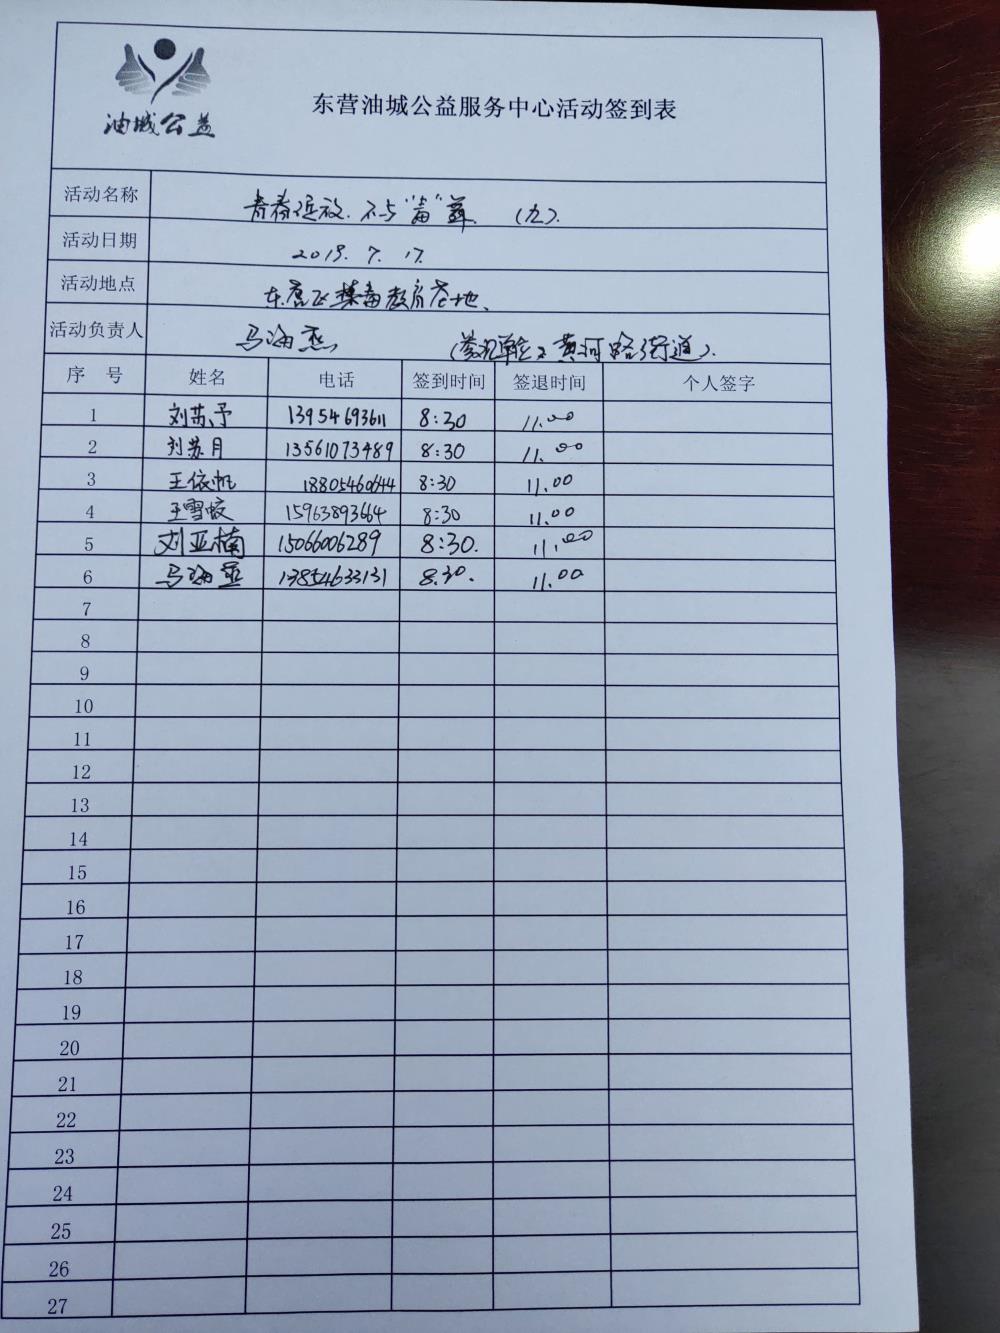 油城公益
东营油城公益服务中心活动签到表
活动名称 青春绽放.不与"毒"舞. (九).
活动日期 2019. 7. 17.
活动地点 东营区禁毒教育基地、
活动负责人 马海燕 黄河路街道).
序 号 姓名 电话 签到时间 签退时间 个人签字
1 刘苏予 13954693611 8:30 11.00
2 刘苏月 13561073489 8:30 11.00
3 王依帆 18805460644 8:30 11.00
4 王雪蛟 15963893664 8:30 11.00
5 刘亚楠 15066006289 8:30. 11.00
6 马海燕 13854633131 8.30. 11.00
7
8
9
10
11
12
13
14
15
16
17
18
19
20
21
22
23
24
25
26
27